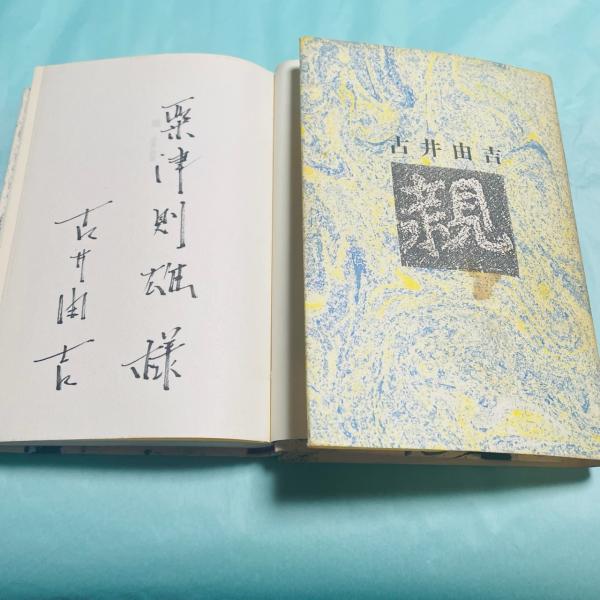 粟津則雄様
古井由吉
古井由吉
親